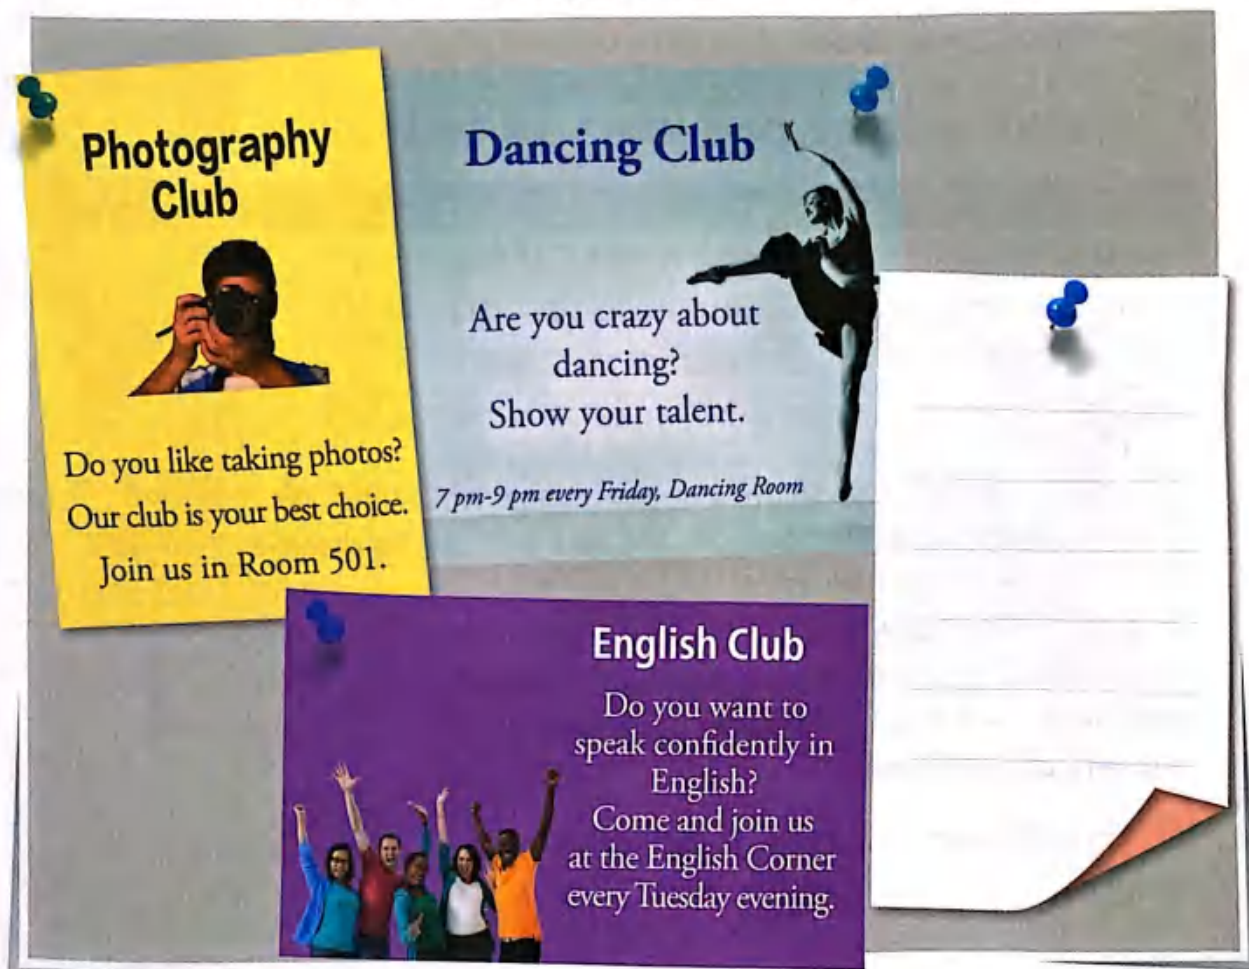 Photography
Club
Do you like taking photos?
Our club is your best choice.
Join us in Room 501.
Dancing Club
Are you crazy about
dancing?
Show your talent.
7 pm-9 pm every Friday, Dancing Room
English Club
Do you want to
speak confidently in
English?
Come and join us
at the English Corner
every Tuesday evening.